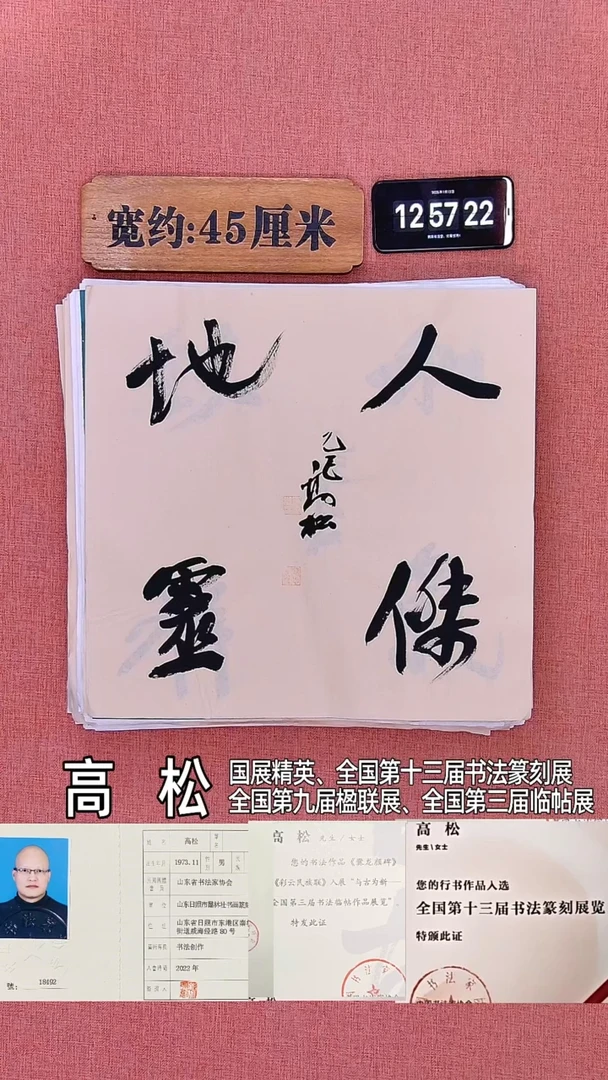 宽约:45厘米
12 57 22
人傑
地靈
乙巳高松
高 松
国展精英、全国第十三届书法篆刻展
全国第九届楹联展、全国第三届临帖展
高松
1973.11
男
山东省书法家协会
街道威海径路80号
书法创作
2022年
號:18492
高 松 先生/女士
您的书法作品
入展“与古为新——
全国第三届书法临帖作品展览”
特发此证
高 松
先生\女士
您的行书作品入选
全国第十三届书法篆刻展览
特颁此证